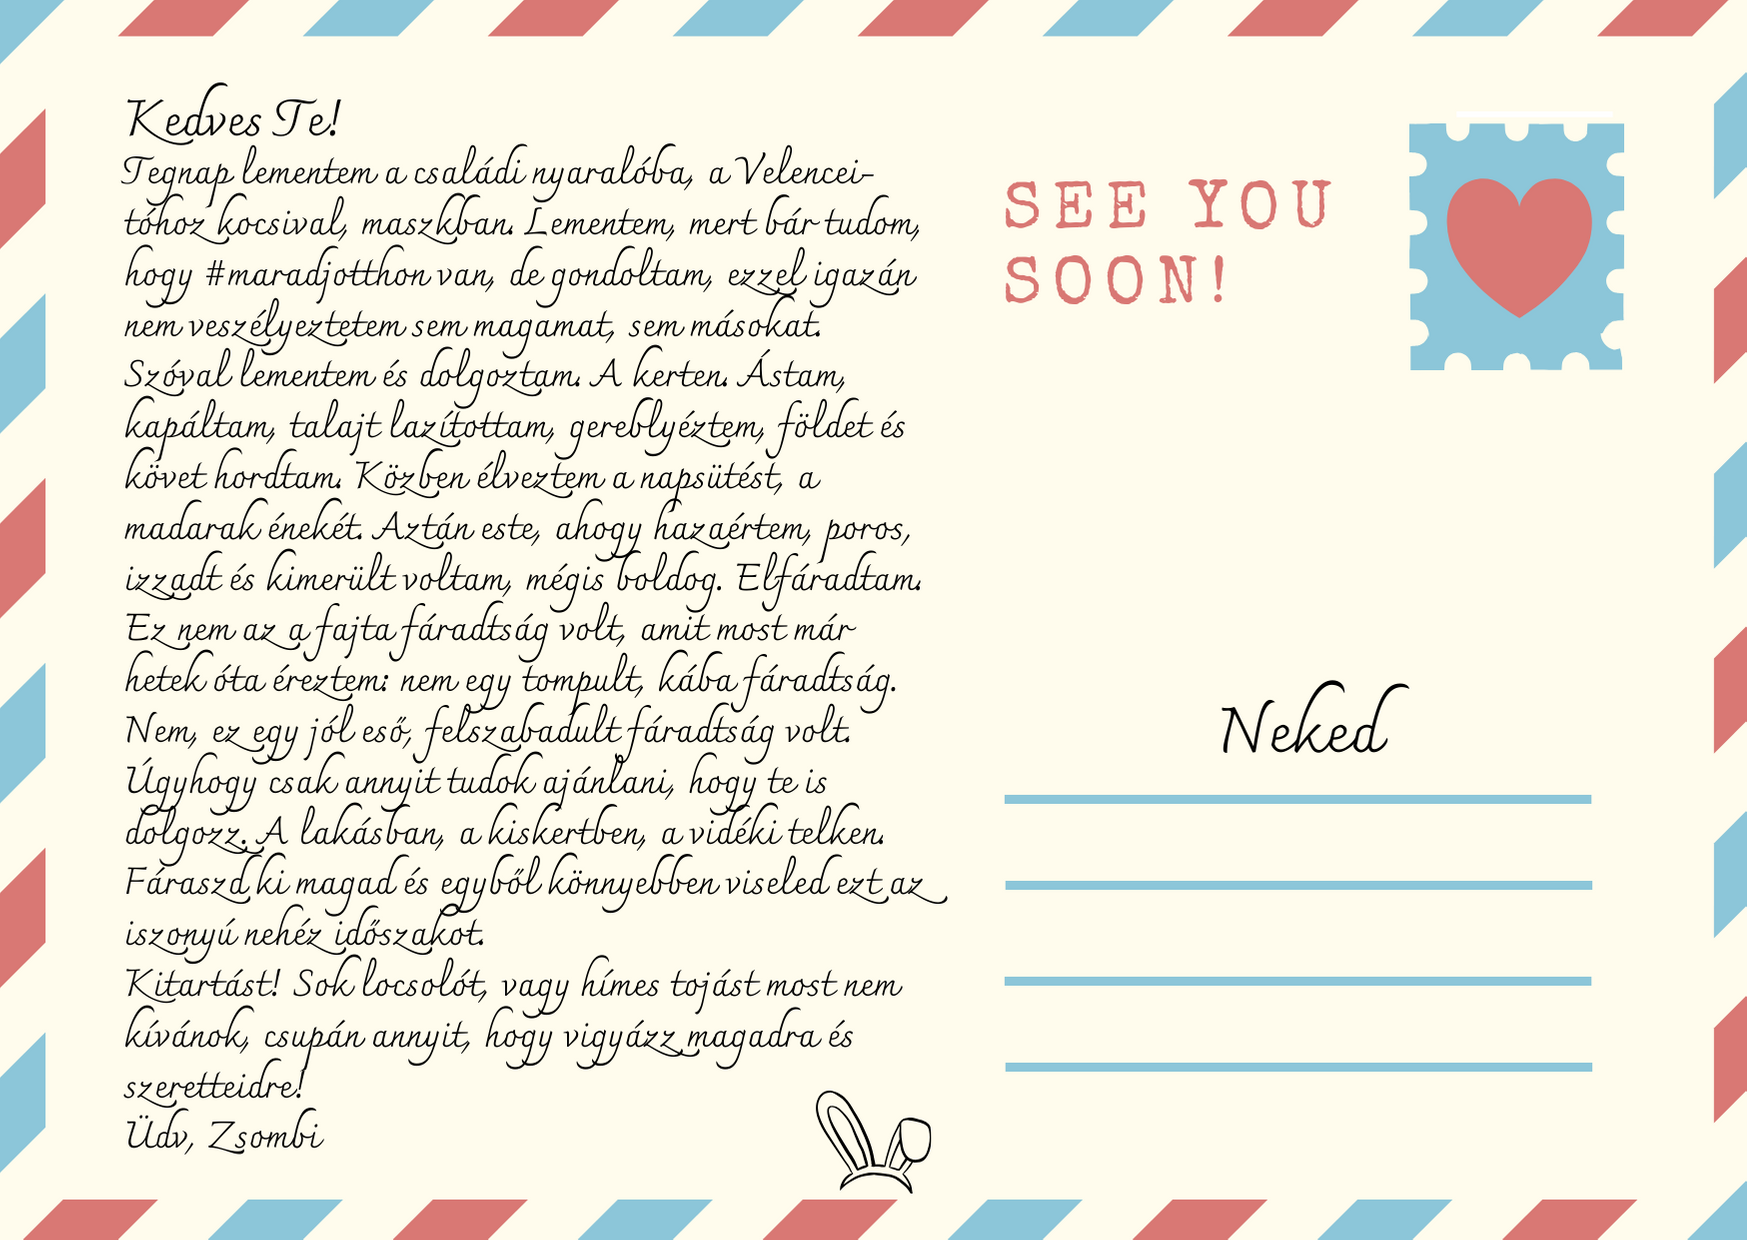 Kedves Te!
Tegnap lementem a családi nyaralóba, a Velencei-
tóhoz kocsival, maszkban. Lementem, mert bár tudom,
hogy #maradjotthon van, de gondoltam, ezzel igazán
nem veszélyeztetem sem magamat, sem másokat.
Szóval lementem és dolgoztam. A kerten. Ástam,
kapáltam, talajt lazítottam, gereblyéztem, földet és
követ hordtam. Közben élveztem a napsütést, a
madarak énekét. Aztán este, ahogy hazaértem, poros,
izzadt és kimerült voltam, mégis boldog. Elfáradtam.
Ez nem az a fajta fáradtság volt, amit most már
hetek óta éreztem: nem egy tompult, kába fáradtság.
Nem, ez egy jól eső, felszabadult fáradtság volt.
Úgyhogy csak annyit tudok ajánlani, hogy te is
dolgozz. A lakásban, a kiskertben, a vidéki telken.
Fáraszd ki magad és egyből könnyebben viseled ezt az
iszonyú nehéz időszakot.
Kitartást! Sok locsolót, vagy hímes tojást most nem
kívánok, csupán annyit, hogy vigyázz magadra és
szeretteidre!
Üdv, Zsombi
SEE YOU
SOON!
Neked